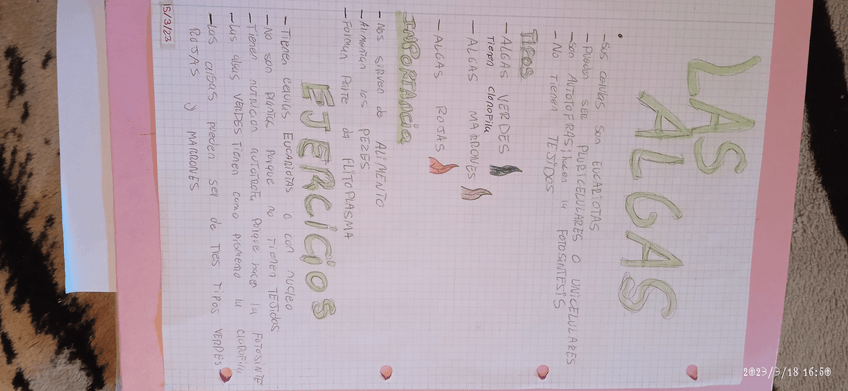 LAS
ALGAS
- SUS CELULAS SON EUCARIOTAS
- PUEDEN SER PLURICELULARES O UNICELULARES
- SON AUTOTOFRAS; hacen la FOTOSINTESIS
- NO TIENEN TEJIDOS
TIPOS
- ALGAS VERDES
Tienen clorofila
- ALGAS MARRONES
- ALGAS ROJAS
IMPORTANCIA
- Nos sirven de ALIMENTO
- Alimentan los PEZES
- Forman Parte da FLITOPLASMA
EJERCICIOS
- Tienen celulas EUCARIOTAS o con nucleo
- No son plantas Porque no Tienen TEJIDOS
- Tienen nutricion autotrofa Porque hacen la FOTOSINTE
- Las algas VERDES Tienen como pigmento la clorofila
- Las algas pueden ser de Tres Tipos VERDES
ROJAS y MARRONES
15/3/23
2023/3/18 16:50